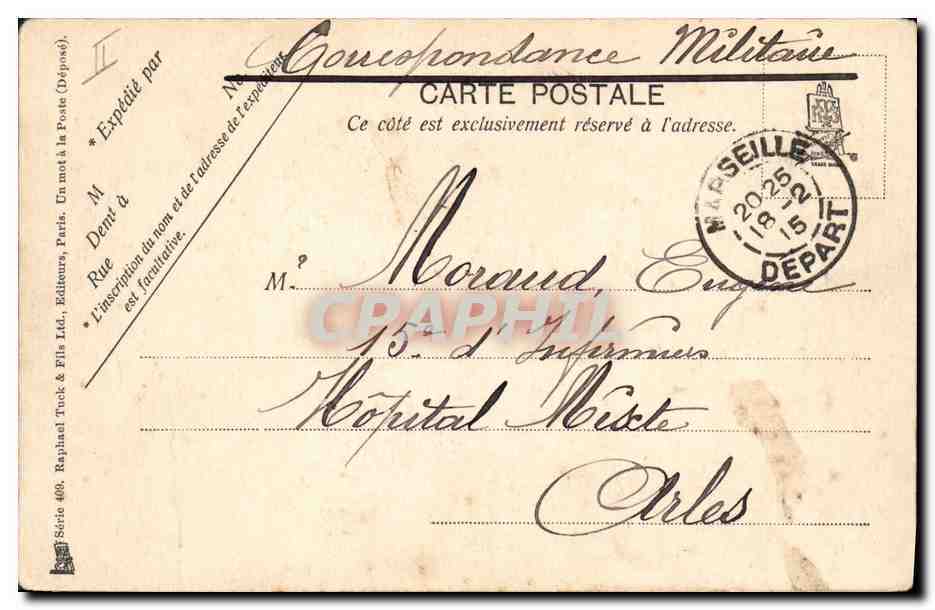 Correspondance Militaire
CARTE POSTALE
Ce côté est exclusivement réservé à l'adresse.
II
* Expédié par
No
M
Demt à
Rue
* L'inscription du nom et de l'adresse de l'expéditeur
est facultative.
Série 409. Raphael Tuck & Fils Ltd., Editeurs, Paris. Un mot à la Poste (Déposé).
MARSEILLE
20-25
18-2
15
DEPART
M. Moraud, Eugène
15e d'Infirmiers
Hôpital Mixte
Arles
CPAPHIL